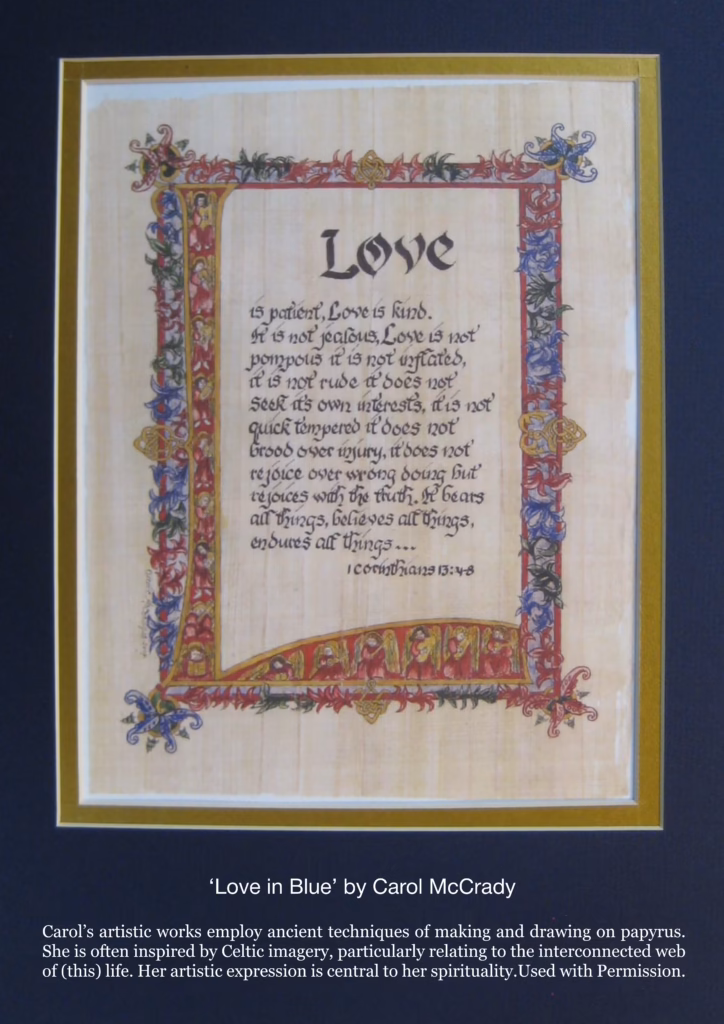 Love
is patient, Love is kind.
It is not jealous, Love is not
pompous it is not inflated,
it is not rude it does not
seek its own interests, it is not
quick tempered it does not
brood over injury, it does not
rejoice over wrong doing but
rejoices with the truth. It bears
all things, believes all things,
endures all things...
1 Corinthians 13:4-8
‘Love in Blue’ by Carol McCrady
Carol’s artistic works employ ancient techniques of making and drawing on papyrus.
She is often inspired by Celtic imagery, particularly relating to the interconnected web
of (this) life. Her artistic expression is central to her spirituality.Used with Permission.